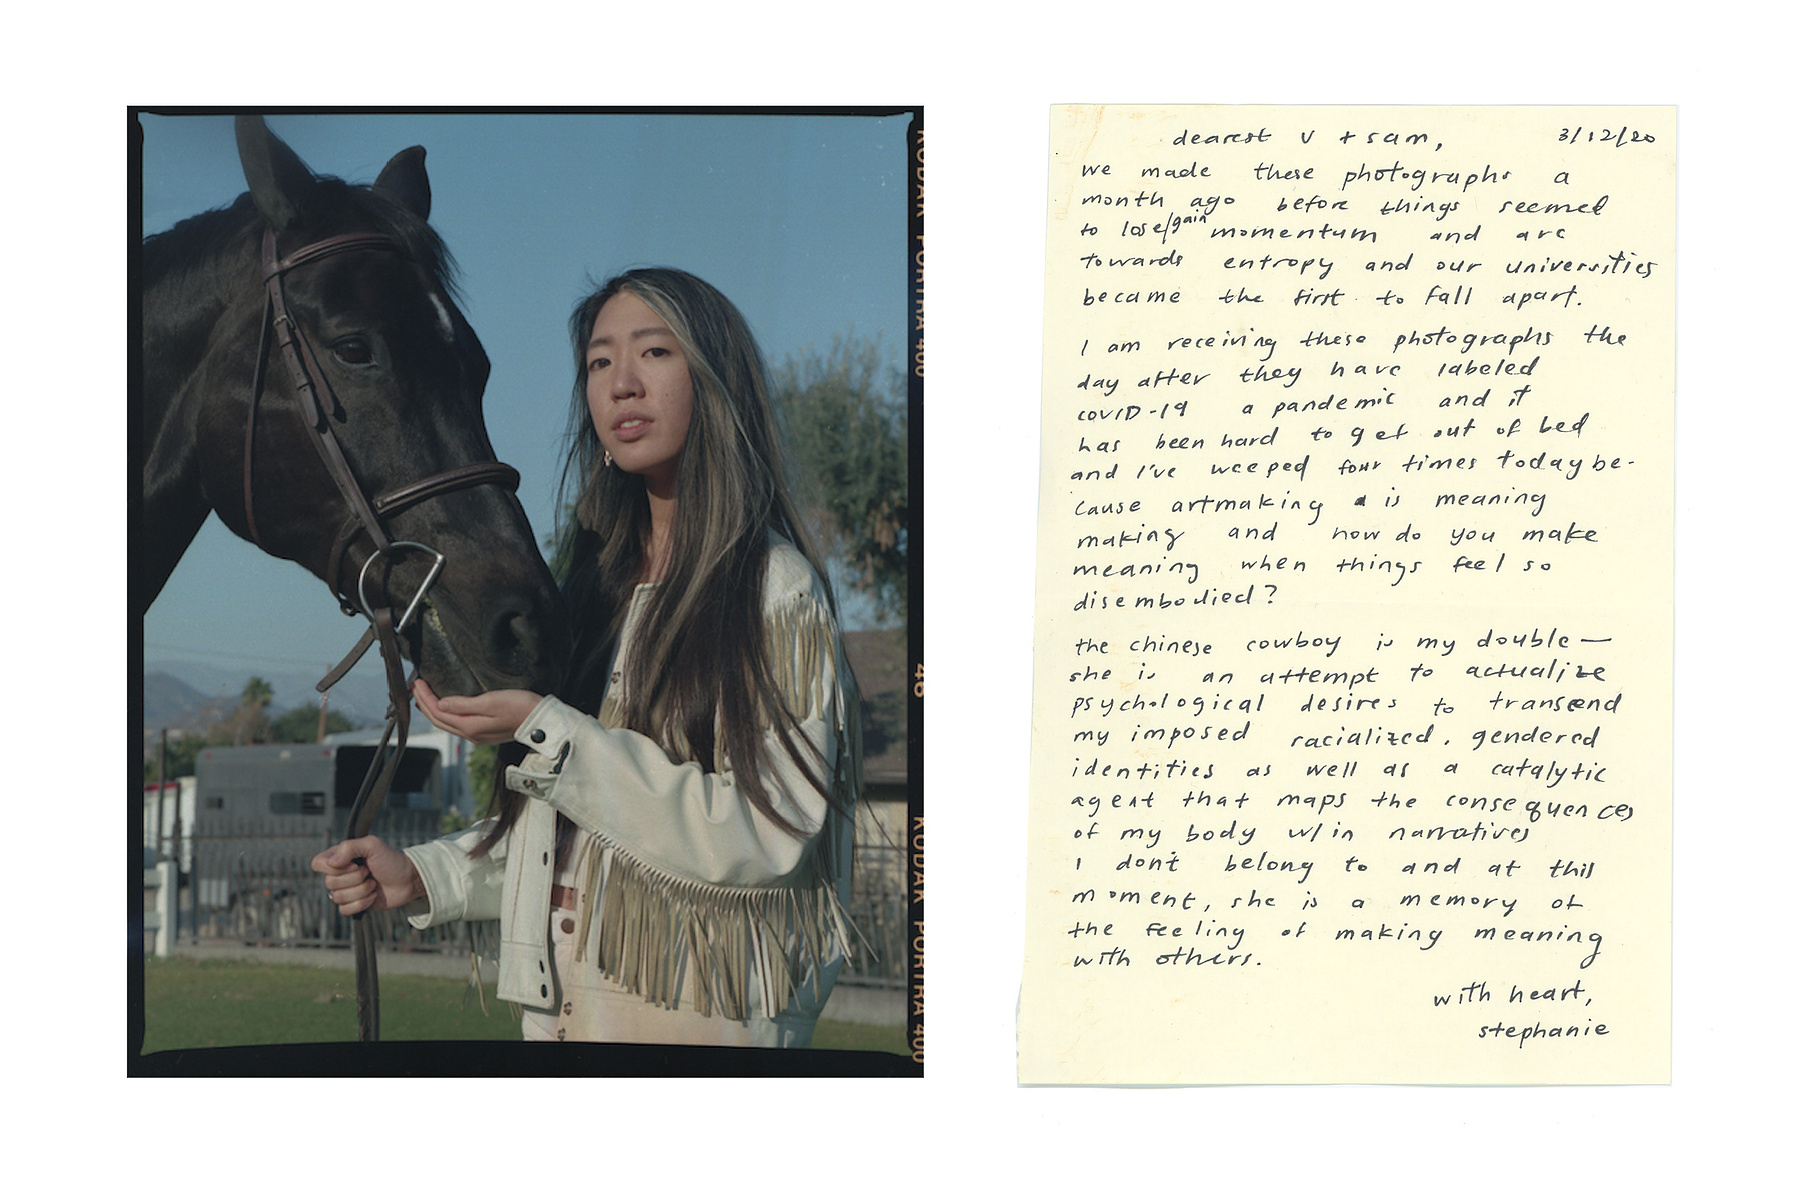 KODAK PORTRA 400
46
KODAK PORTRA 400
dearest v + sam, 3/12/20
we made these photographs a
month ago before things seemed
to lose/gain momentum and arc
towards entropy and our universities
became the first to fall apart.
I am receiving these photographs the
day after they have labeled
covID-19 a pandemic and it
has been hard to get out of bed
and I've weeped four times today be-
cause artmaking is meaning
making and how do you make
meaning when things feel so
disembodied?
the chinese cowboy is my double—
she is an attempt to actualize
psychological desires to transcend
my imposed racialized, gendered
identities as well as a catalytic
agent that maps the consequences
of my body w/in narratives
I don't belong to and at this
moment, she is a memory of
the feeling of making meaning
with others.
with heart,
stephanie